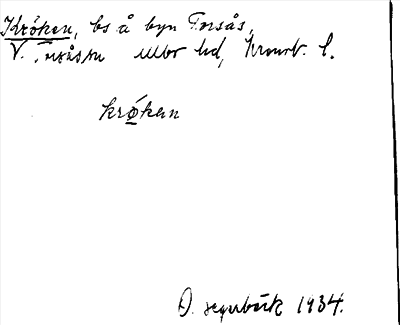 Kröken, bs å byn Torsås,
V. Torsås sn Allbo hd, Kronob. l.
krø̄́kan
D. Segerbäck 1934.